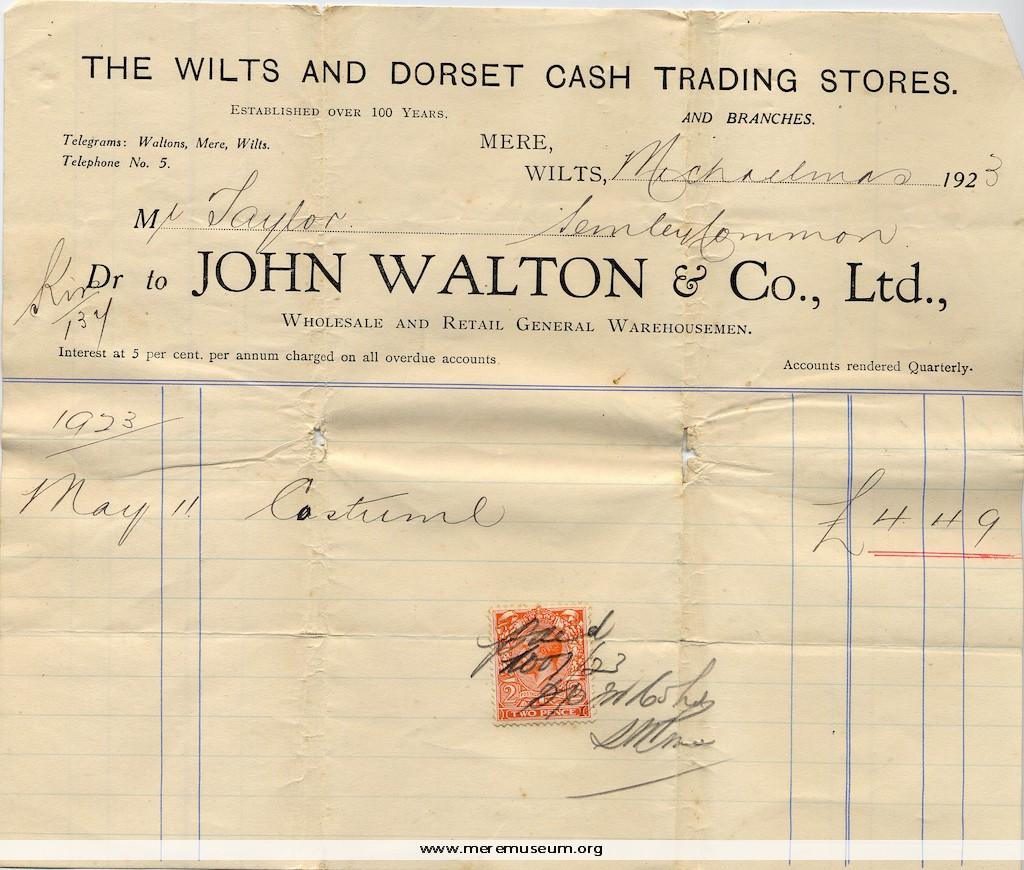 THE WILTS AND DORSET CASH TRADING STORES.
ESTABLISHED OVER 100 YEARS.
AND BRANCHES.
Telegrams: Waltons, Mere, Wilts.
Telephone No. 5.
MERE,
WILTS, Michaelmas 1923
Mr Taylor Semley Common
Dr to JOHN WALTON & Co., Ltd.,
134
WHOLESALE AND RETAIL GENERAL WAREHOUSEMEN.
Interest at 5 per cent. per annum charged on all overdue accounts
Accounts rendered Quarterly.
1923
May 11 Costume £4 4 9
Paid
23
2
TWO PENCE
www.meremuseum.org